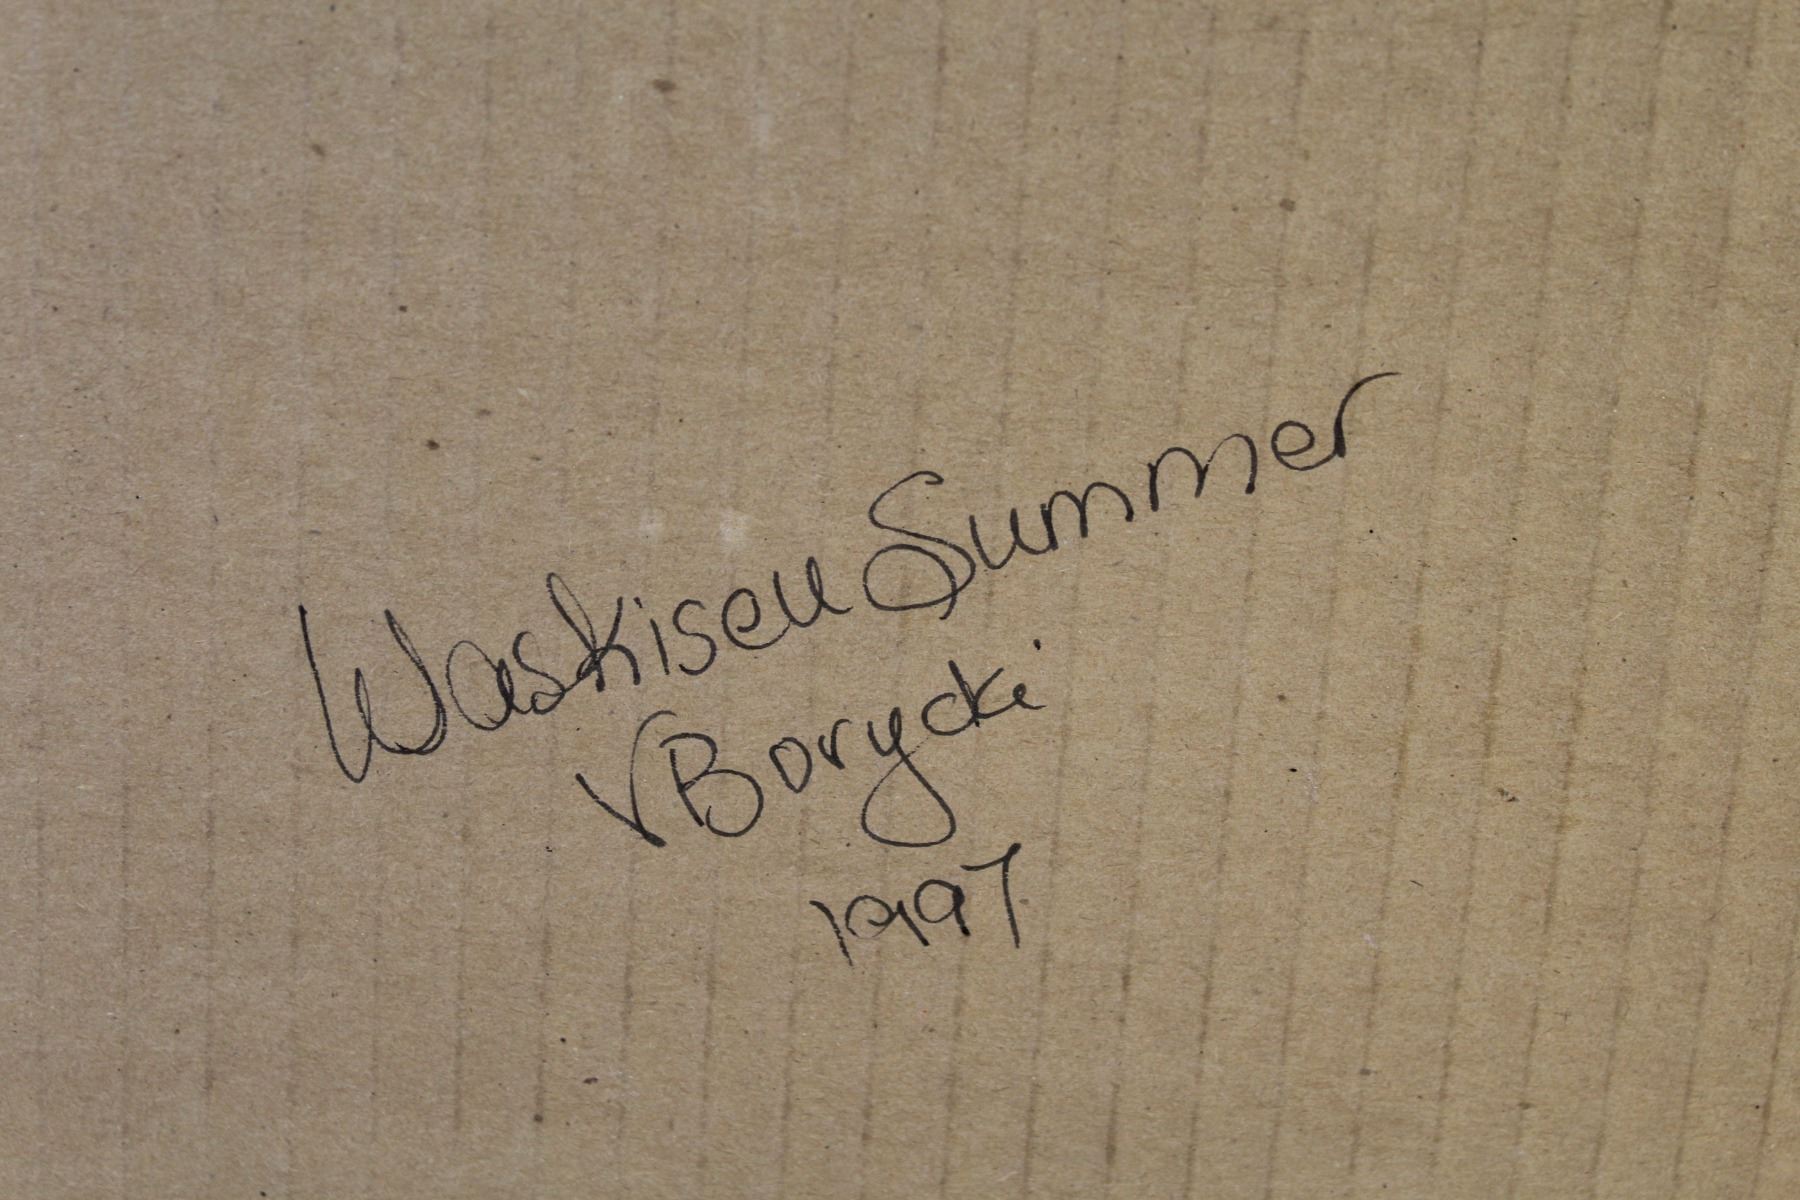 Waskiseu Summer
V Borycki
1997